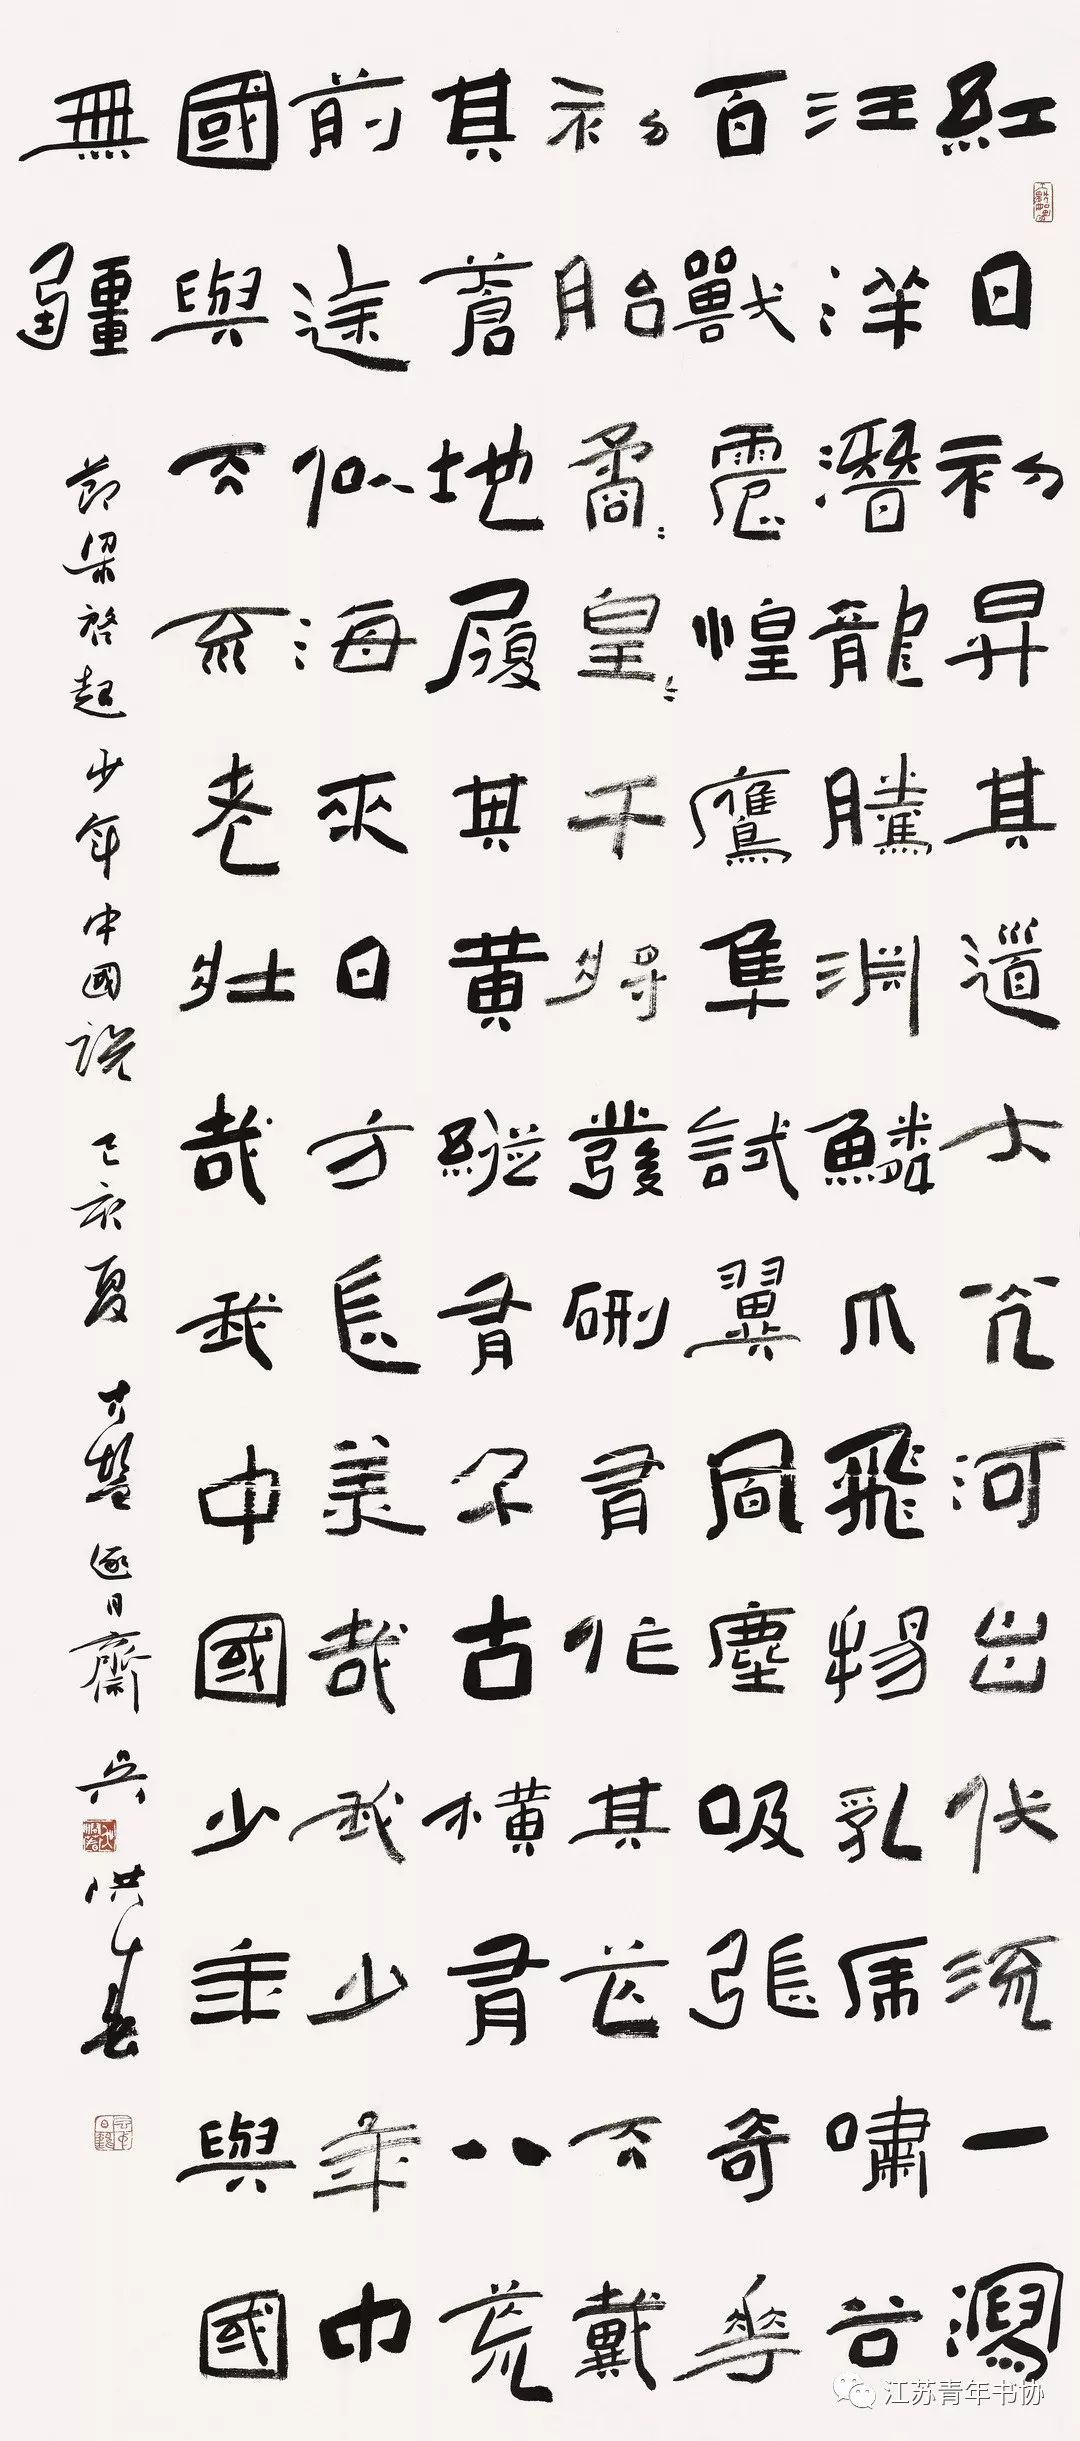 紅日初昇其道大光河出伏流一瀉
汪洋潛龍騰淵鱗爪飛揚乳虎嘯谷
百獸震惶鷹隼試翼風塵吸張奇華
初胎矞〻皇〻干將發硎有作其芒天戴
其蒼地履其黃縱有千古橫有八荒
前途似海來日方長美哉我少年中
國與天不老壯哉我中國少年與國
無疆
節梁啓超少年中國說 己亥夏 逐日齋 吳洪春
江苏青年书协